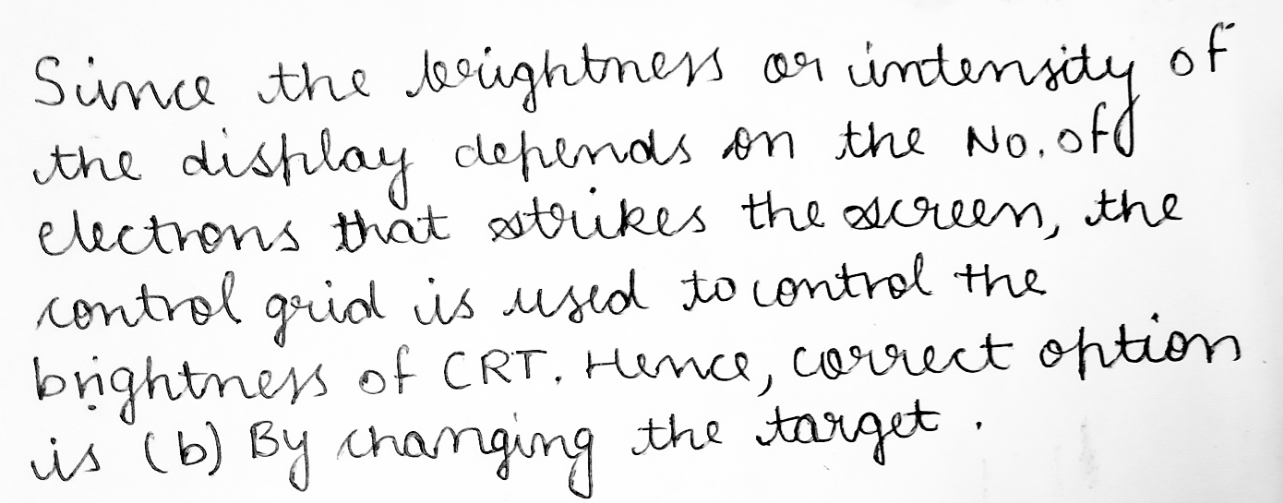 Since the brightness or intensity of
the display depends on the No. of
electrons that strikes the screen, the
control grid is used to control the
brightness of CRT. Hence, correct option
is (b) By changing the target.